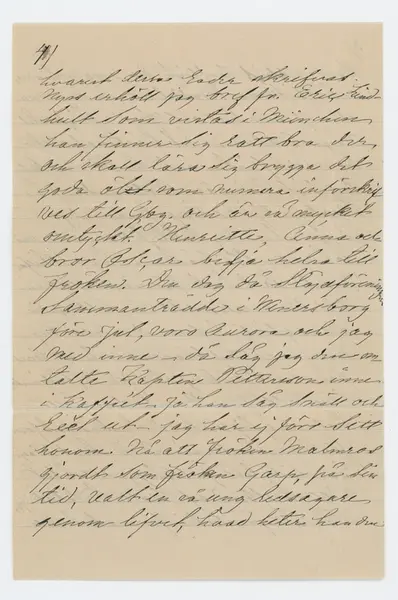 4)
hvarest deras Eder skrifvas.
Nyss erhöll jag bref fr. Eric Lind-
hult som vistas i München
han finner sig rätt bra der,
och skall lära sig brygga det
goda ölet som numera införskrif
ves till Gbg. och är så mycket
omtyckt. Henriette, Anna och
bror Oscar bedja helsa till
Fröken. Den dag då Slöjdföreningen
sammanträdde i Wenersborg
före jul, voro Aurora och jag
med inne – då såg jag den om
talte Kapten Pettersson inne
i Kaféet, ja han såg snäll och
ut jag har ej förr sett
honom. Nå att Fröken Malmros
gjordt som fröken Garp, på sin
tid, valt en så ung ledsagare
genom lifvet, hvad heter han den